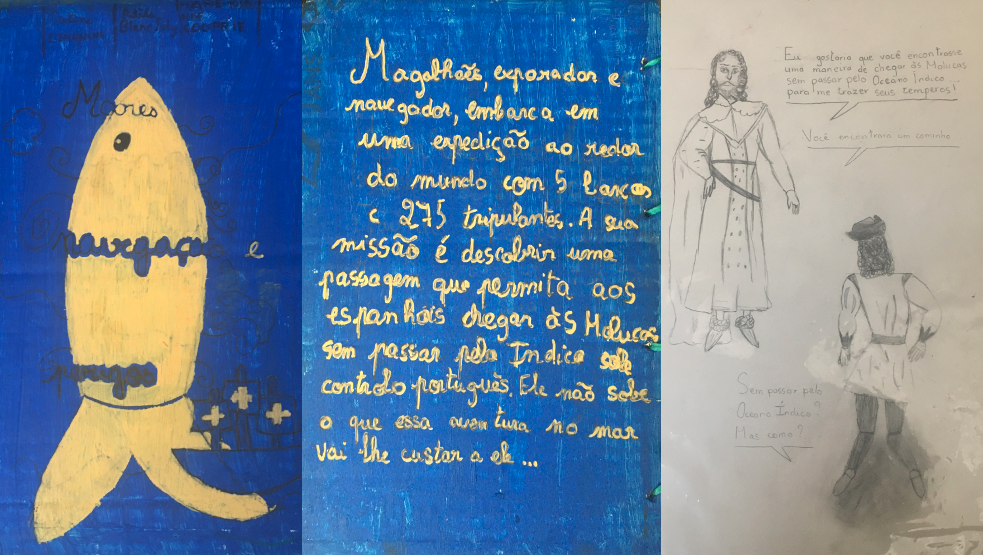 Mares
navegaç
e
perigos
Magalhães, exporador e
navegador, embarca em
uma expedição ao redor
do mundo com 5 barcos
e 275 tripulantes. A sua
missão é descobrir uma
passagem que permita aos
espanhóis chegar às Molucas
sem passar pela Indica sob
controlo português. Ele não sabe
o que essa aventura no mar
vai lhe custar a ele ...
Eu gostaria que você encontrasse
uma maneira de chegar às Molucas
sem passar pelo Oceano Índico...
para me trazer seus temperos!
Você encontrara um caminho
Sem passar pelo
Oceano Índico?
Mas como?